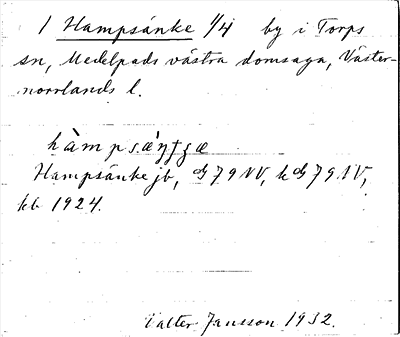 1 Hampsänke 1/4 by i Torps
sn, Medelpads västra domsaga, Väster-
norrlands l.
hàmpsæ̀ŋ̠ʆʒæ
Hampsänke jb, 79 NV, k 79 NV,
kb 1924.
Valter Jansson 1932.